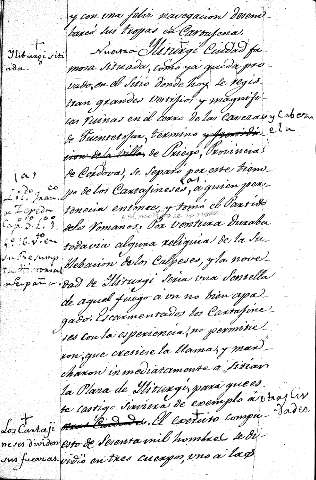 y con una feliz navegacion desem-
barcó sus tropas en Cartagena.
Nuestra Iliturgi Ciudad fa-
mosa situada, como ya queda pro-
vado, en el sitio donde hoy se regis-
tran grandes vestigios y magnifi-
cas ruinas en el cerro de las cuevas y Cabeza
de Fuentetojar, termino
de la Villa, de Priego, Provincia
de Cordova, se separó por este tiem-
po de los Cartagineses, á quien per-
tenecia entonces, y tomó el Partido
de los Romanos. Por ventura duraba
todavia alguna reliquia de la su-
blebacion de los
y la nove-
dad de Iliturgi seria una sentella
de aquel fuego aun no bien apa-
gado. Escarmentados los Cartagine-
ses con la esperiencia, no permitie-
ron, que creciese la llama, y mar-
charon inmediatamente á sitiar
la Plaza de Iliturgi, para que es-
te castigo sirviera de exemplo á otras Ciu-
dades.
El exercito compu-
esto de sesenta mil hombres se di-
vidió en tres cuerpos, uno á las
Iliturgi siti-
ada.
Los Cartagi-
neses dividen
sus fuerzas.